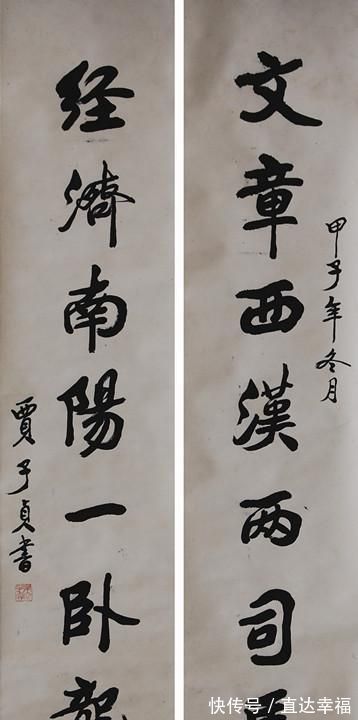 甲子年冬月
文章西漢两司
经濟南陽一卧龍
賈子貞書
快传号/直达幸福